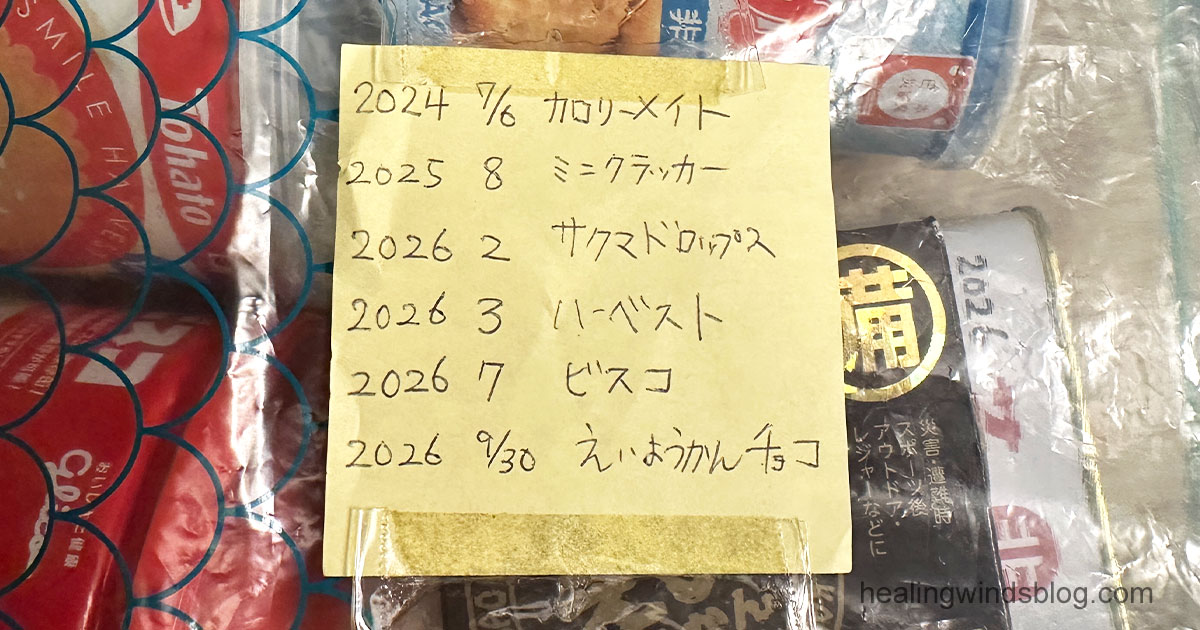 2024 7/6 カロリーメイト
2025 8 ミニクラッカー
2026 2 サクマドロップス
2026 3 ハーベスト
2026 7 ビスコ
2026 9/30 えいようかんチョコ
SMILE HARVE
Tohato
おいしくて健康
非
備
2026
災害・遭難時
スポーツ後
アウトドア・
レジャーなどに
healingwindsblog.com